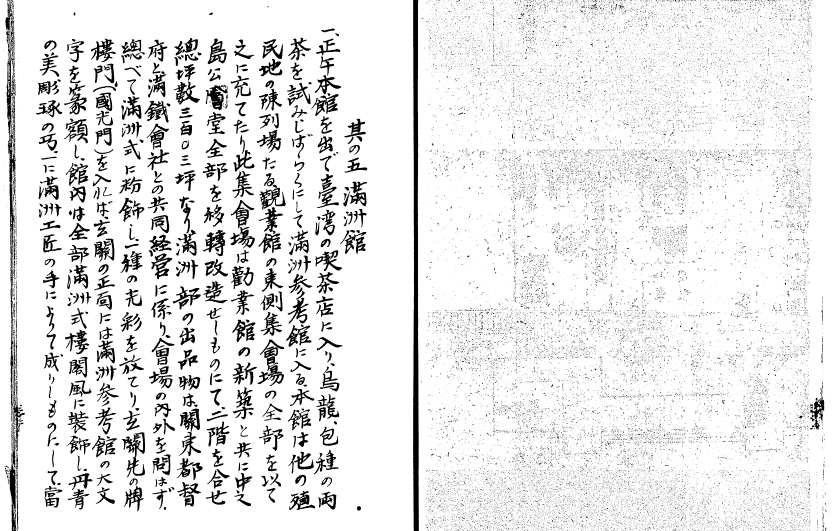 其の五 滿洲館
一、正午本館を出で臺湾の喫茶店に入り、烏龍、包種の両
茶を試みしばらくにして滿洲参考館に入る、本館は他の殖
民地の陳列場たる觀業館の東側集會場の全部を以て
之に充てたり、此集會場は勸業館の新築と共に中之
島公會堂全部を移轉改造せしものにて、二階を合せ
總坪數三百〇三坪なり、滿洲部の出品物は、關東都督
府と滿鐵會社との共同経営に係り、會場の内外を問はず、
總べて滿洲式に粉飾し、一種の光彩を放てり、玄關先の牌
樓門(國光門)を入れば玄關の正面には滿洲参考館の六文
字を篆額し、館内は全部滿洲式樓閣風に装飾し、丹青
の美彫琢の巧一に滿洲工匠の手によりて成りしものにして、當